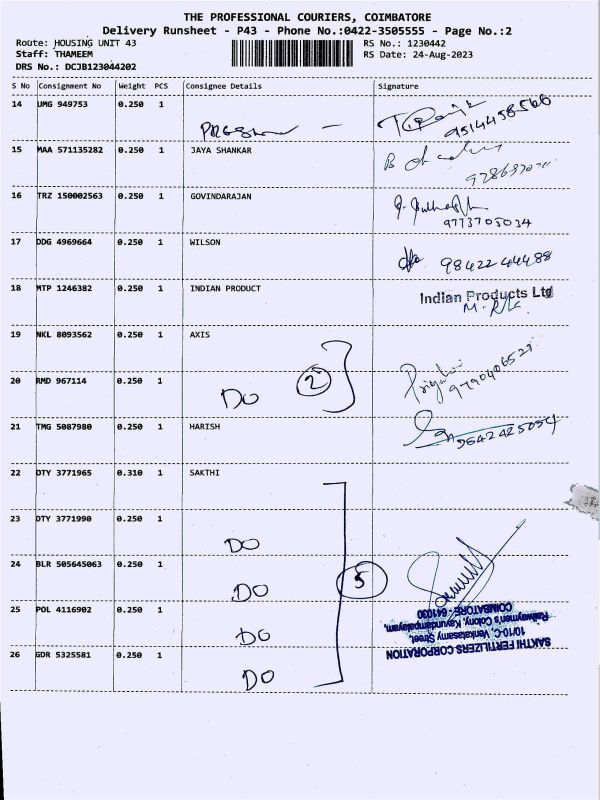 THE PROFESSIONAL COURIERS, COIMBATORE
Delivery Runsheet - P43 - Phone No.:0422-3505555 - Page No.:2
Route: HOUSING UNIT 43
RS No.: 1230442
Staff: THAMEEM
RS Date: 24-Aug-2023
DRS No.: DCJB123044202
S No Consignment No Weight PCS Consignee Details Signature
14 UMG 949753 0.250 1
9514458566
15 MAA 571135282 0.250 1 JAYA SHANKAR
16 TRZ 150002563 0.250 1 GOVINDARAJAN
9773705034
17 DDG 4969664 0.250 1 WILSON
98422 44488
18 MTP 1246382 0.250 1 INDIAN PRODUCT
Indian Products Ltd
19 NKL 8093562 0.250 1 AXIS
20 RMD 967114 0.250 1 DO 2 9790406529
21 TMG 5087980 0.250 1 HARISH
9842425054
22 DTY 3771965 0.310 1 SAKTHI
23 DTY 3771990 0.250 1 DO
24 BLR 505645063 0.250 1 DO 5
25 POL 4116902 0.250 1 DO
26 GDR 5325581 0.250 1 DO
SAKTHI FERTILIZERS CORPORATION
10/10-C, Venkatasamy Street,
Railwaymen's Colony, Kavundampalayam,
COIMBATORE - 641030